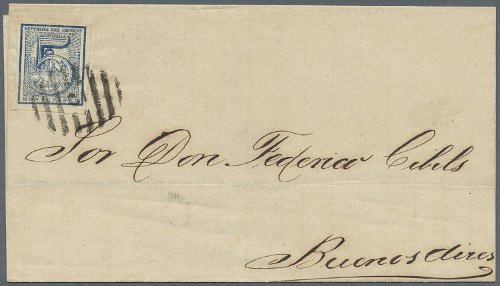 REPUBLICA DEL URUGUAY
5
Sor Don Federico Cibils
Buenos Aires